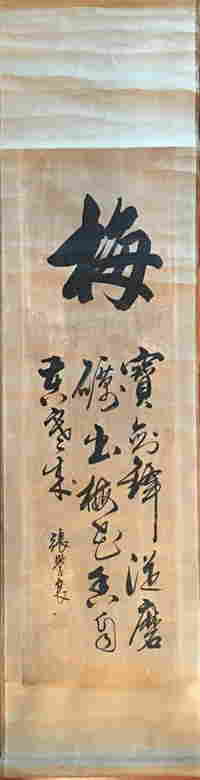 梅
寶劍鋒從磨
礪出梅花香自
苦寒來
張學良